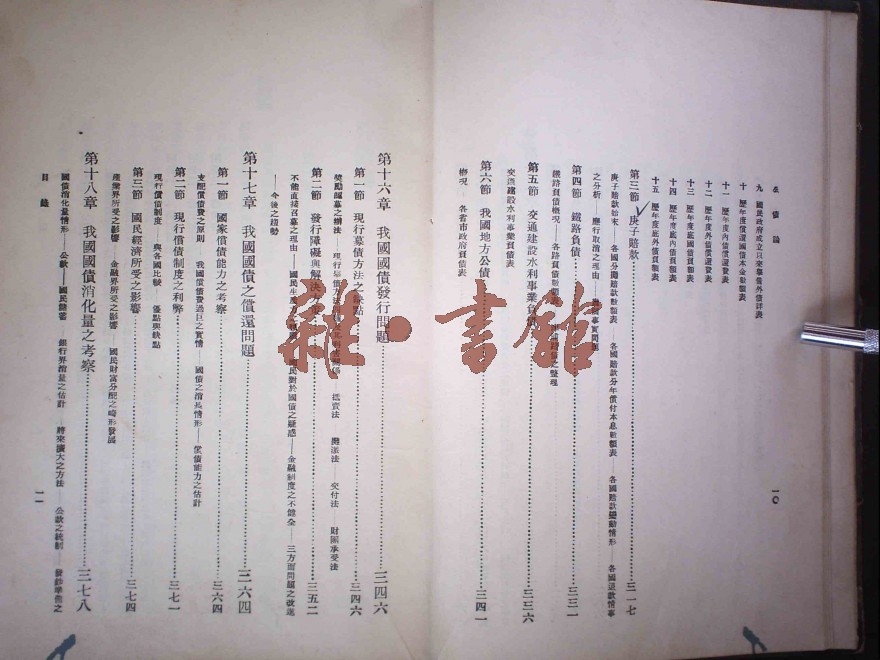 公債論
一〇
九 國民政府成立以來舉借外債詳表
十 歷年度償還兩債本金數額表
十一 歷年度內債償還費表
十二 歷年度外債償還費表
十三 歷年度底國債負額表
十四 歷年度底內債負額表
十五 歷年度底外債負額表
第三節 庚子賠款……三一七
庚子賠款始末 各國分攤賠款數額表 各國賠款分年償付本息數額表 各國賠款變動情形 各國退款情事
之分析 應行取消之理由
第四節 鐵路負債……三三一
鐵路負債概況 各路負債數額表
第五節 交通建設水利事業負債……三三六
交通建設水利事業負債表
第六節 我國地方公債……三四一
概況 各省市政府負債表
第十六章 我國國債發行問題……三四六
第一節 現行募債方法之缺點……三四六
獎勵認募之辦法 現行舉債方法 攤派法 交付法 財團承受法
第二節 發行障礙與解決……三五二
不能直接召募之理由 國民對於國債之疑惑 金融制度之不健全 三方面問題之改進
今後之趨勢
第十七章 我國國債之償還問題……三六四
第一節 國家償債能力之考察……三六四
支配償債費之原則 我國償債費過巨之實情 國債之消長情形 償債能力之估計
第二節 現行償債制度之利弊……三七一
現行償債制度 與各國比較 優點與缺點
第三節 國民經濟所受之影響……三七四
產業界所受之影響 金融界所受之影響 國民財富分配之畸形發展
第十八章 我國國債消化量之考察……三七八
國債消化量情形 公款 國民儲蓄 銀行界消量之估計 將來擴大之方法 公款之統制 發鈔準備之
目錄
一一
雜·書館